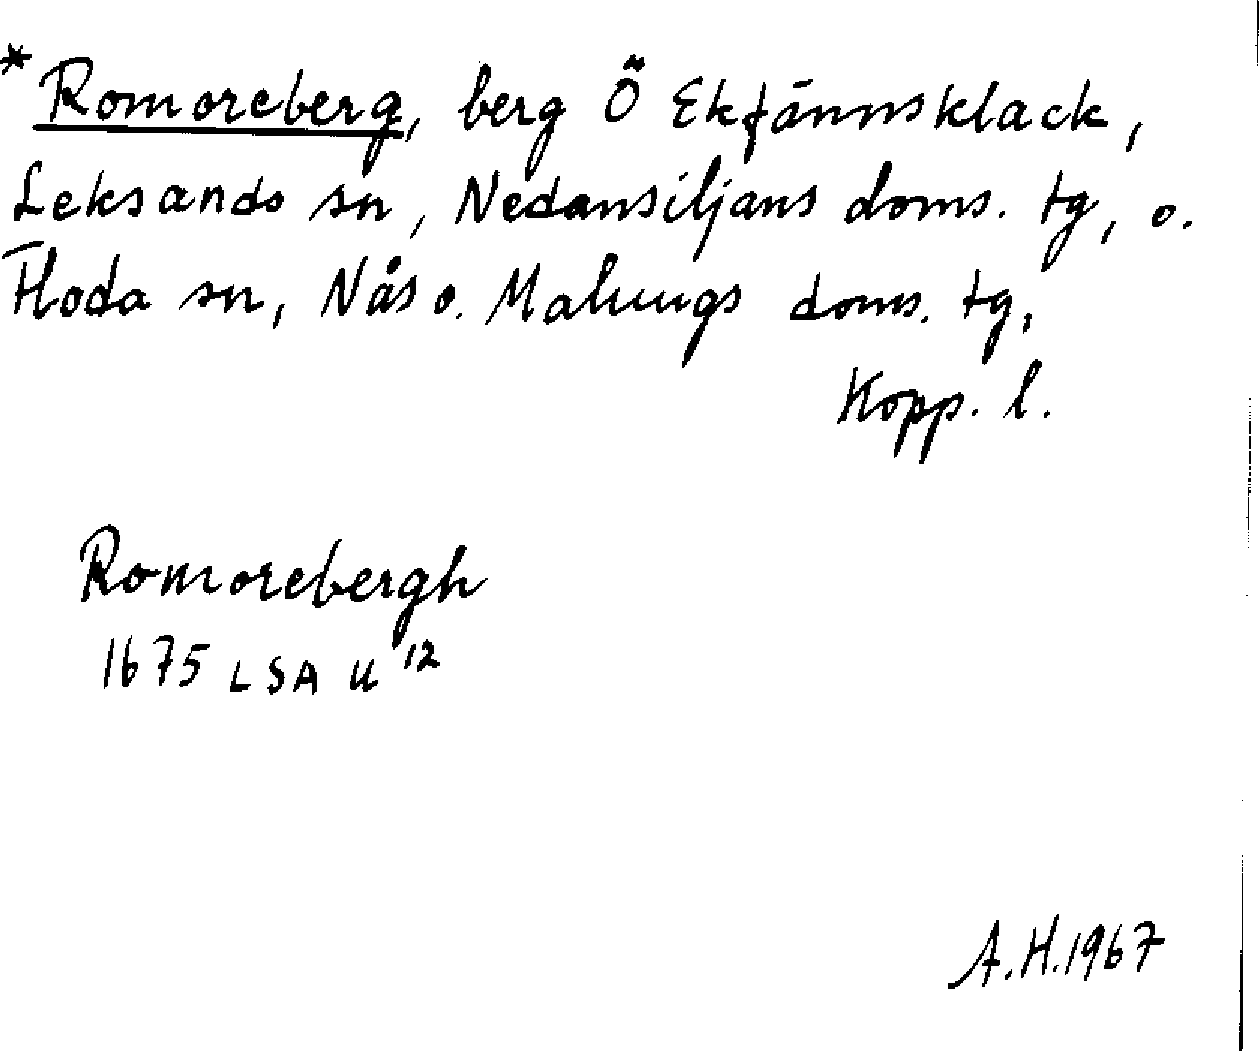 *Romoreberg, berg Ö Ekfännsklack,
Leksands sn, Nedansiljans doms. tg, o.
Floda sn, Nås o. Malungs doms. tg,
Kopp. l.
Romorebergh
1675 LSA U 12
A.H. 1967